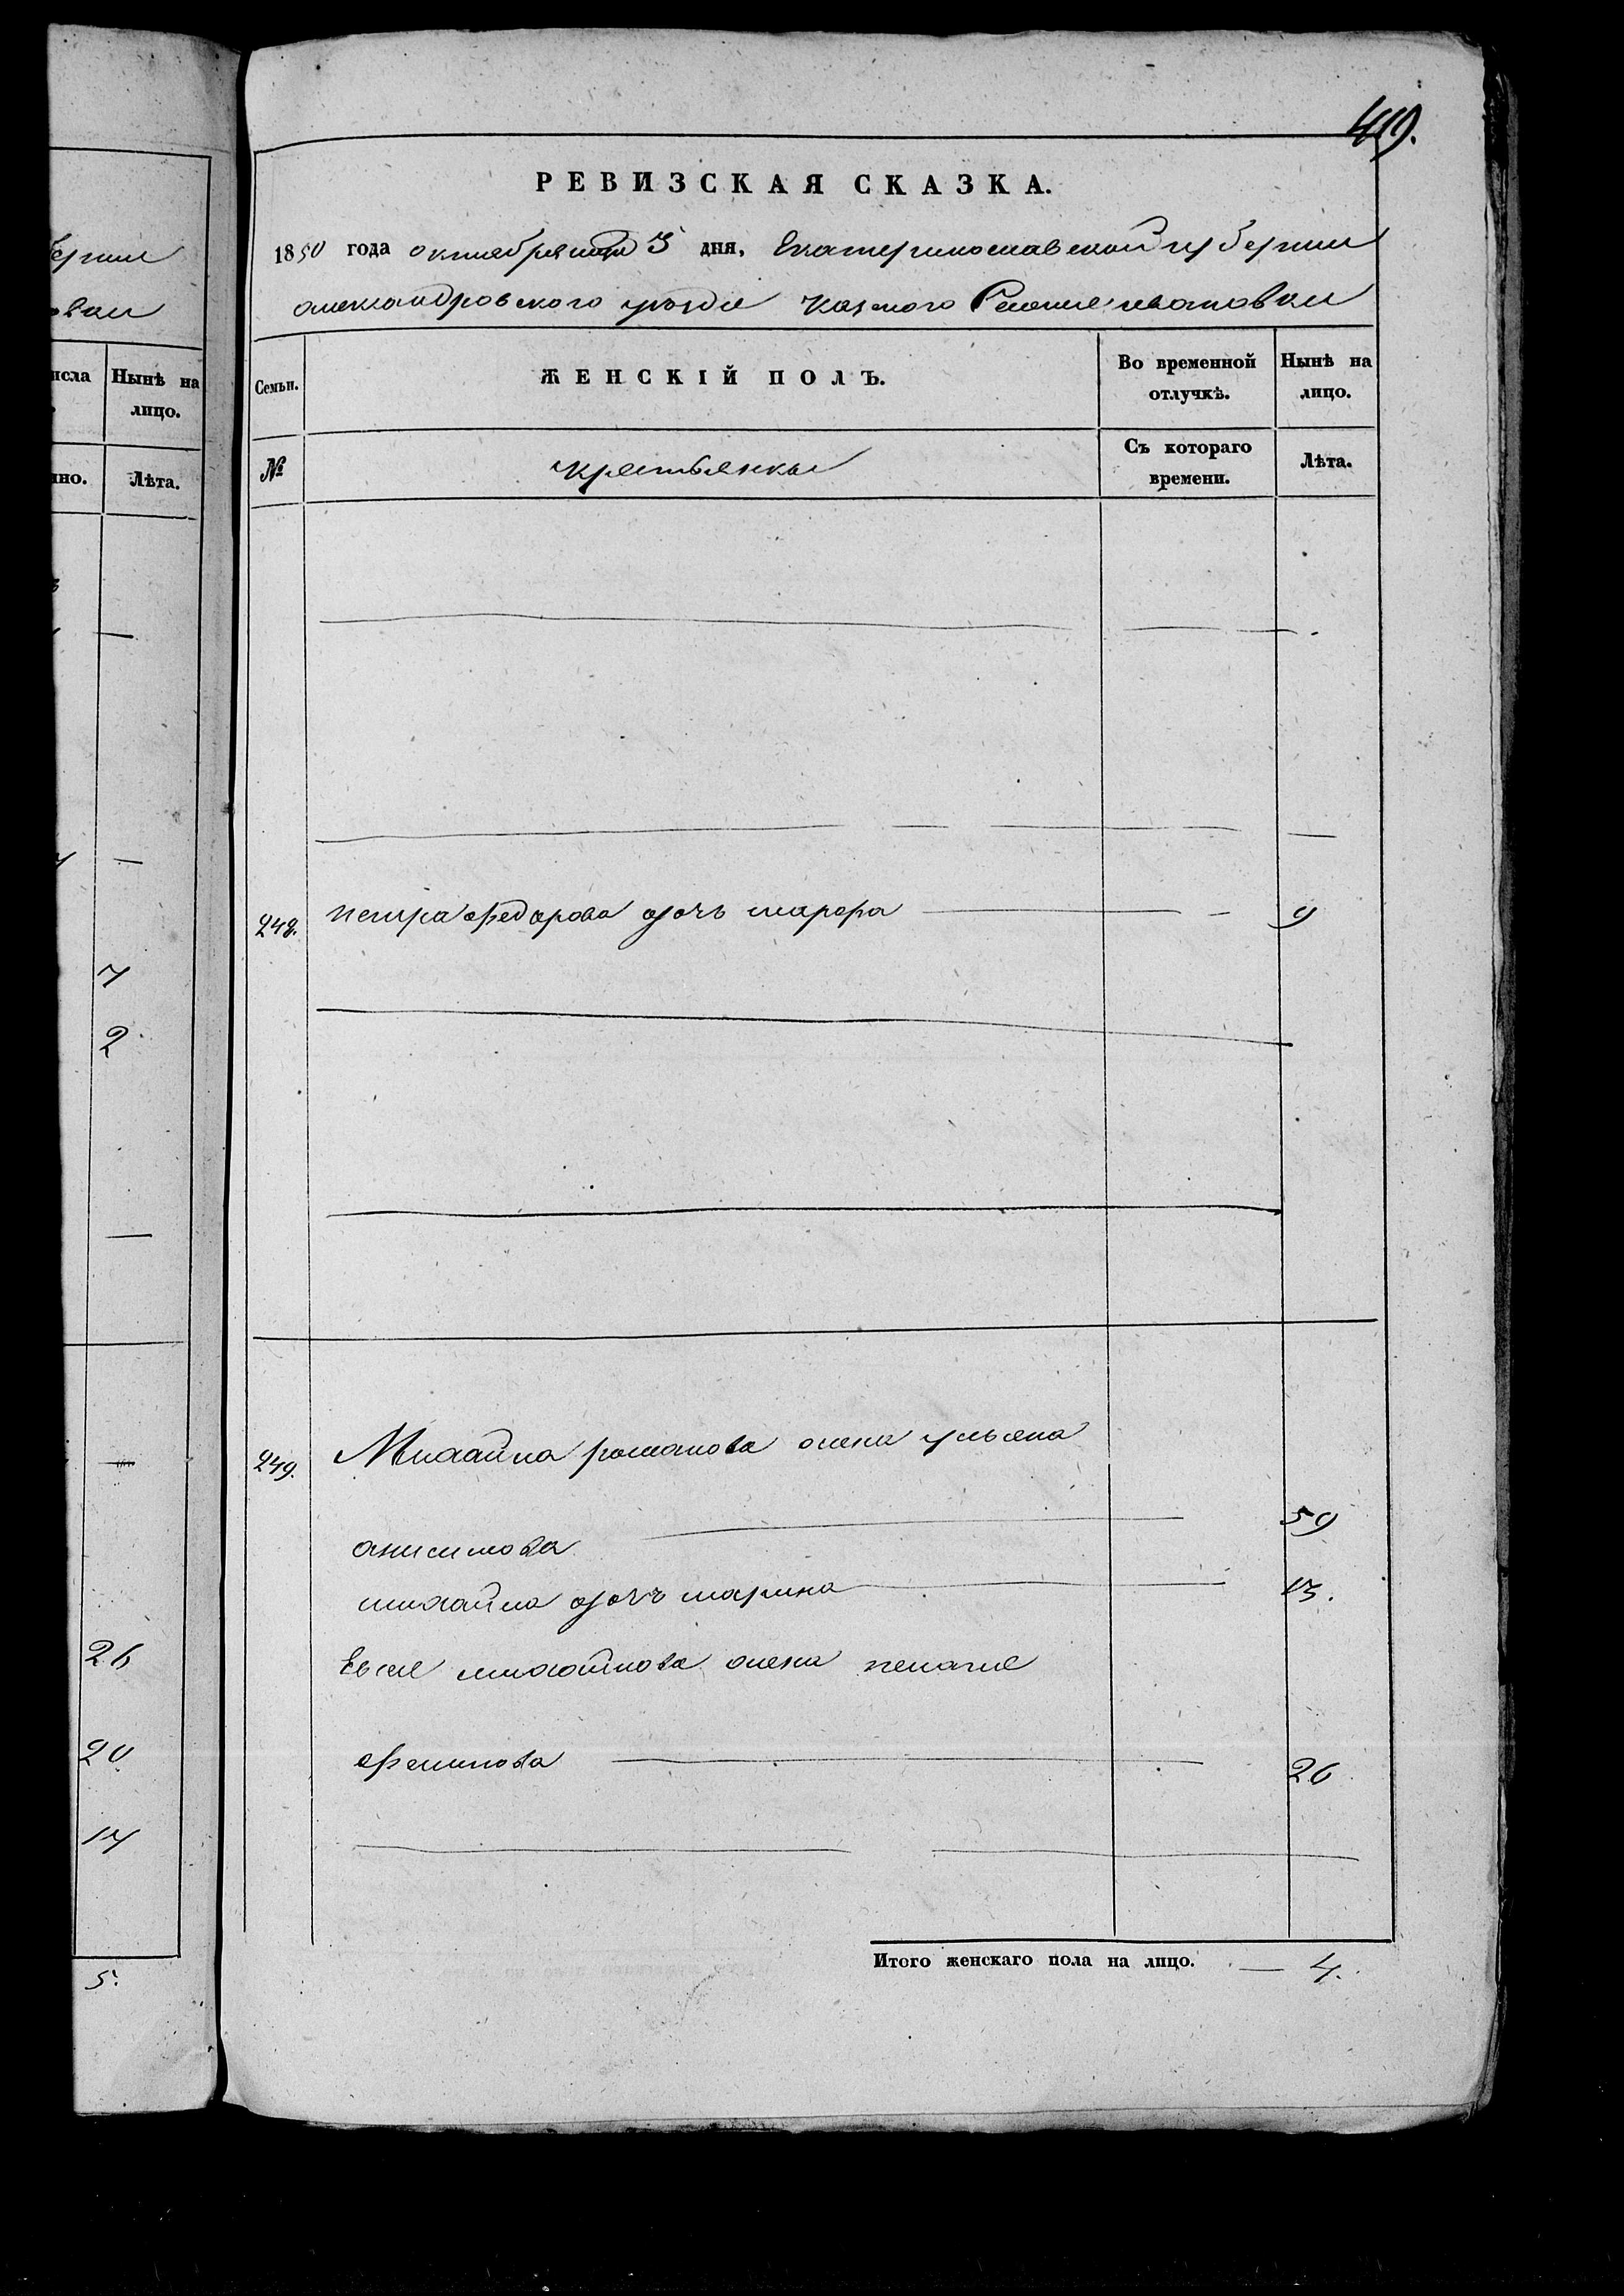 419.
РЕВИЗСКАЯ СКАЗКА.
1850 года октября 3 дня, Екатеринославской губернии
александровского уезда Казеного Селения ивановки
Семьи.
ЖЕНСКІЙ ПОЛЪ.
Во временной отлучкѣ.
Нынѣ на лицо.
№
крестьянки
Съ котораго времени.
Лѣта.
248. петра федорова дочь марфа 9
249. Михайла романова жена ульяна
анисимова 59
михайла дочъ марина 13.
Евсея михайлова жена пелагея
филипова 26
Итого женскаго пола на лицо. 4.
ерніи
овки
исла
Нынѣ на лицо.
нно.
Лѣта.
7
2
26
20
17
5.